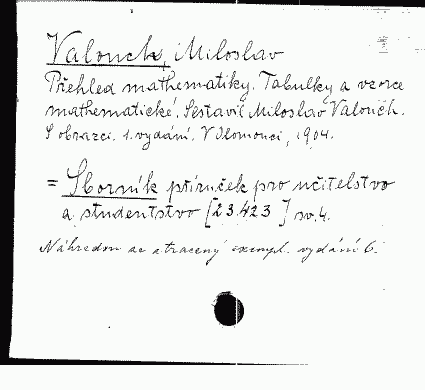 Valouch, Miloslav
Přehled mathematiky. Tabulky a vzorce
mathematické. Sestavil Miloslav Valouch.
S obrazci. 1. vydání. V Olomouci, 1904.
= Sborník příruček pro učitelstvo
a studentstvo [23.423] sv. 4.
Náhradou za ztracený exempl. vydání 6.